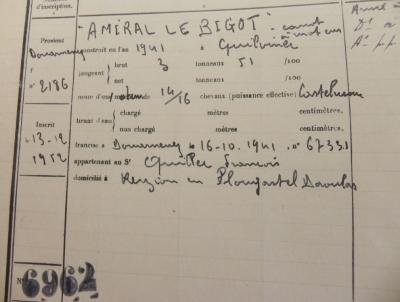 d'inscription.
"AMIRAL LE BIGOT" - canot
à moteur
Provient
Douarnenez
f° 2186
construit en l'an 1941 à Guilvinec
jaugeant
brut 3 tonneaux 51 /100
net tonneaux /100
14/16 chevaux (puissance effective)
tirant d'eau
chargé mètres centimètres.
non chargé mètres centimètres.
Inscrit
13-12
1952
francisé à Douarnenez le 16-10. 1941 n° 6733
appartenant au Sr Quillec Francois
domicilié à Plougastel Daoulas
N° 6962